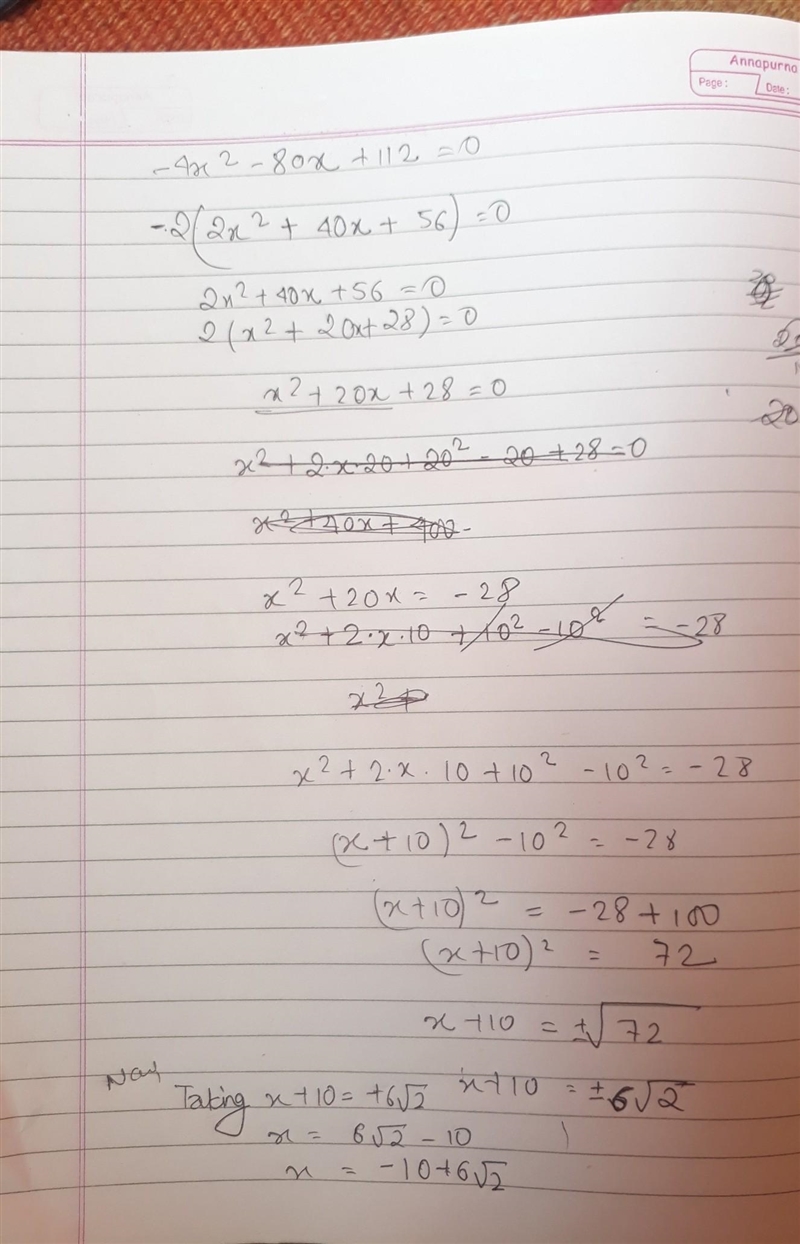 Annapurna
Page: Date:
-4x² - 80x + 112 = 0
-2(2x² + 40x + 56) = 0
2x² + 40x + 56 = 0
2(x² + 20x + 28) = 0
x² + 20x + 28 = 0
x² + 2·x·20 + 20² - 20 + 28 = 0
x² + 40x + 400
x² + 20x = -28
x² + 2·x·10 + 10² - 10² = -28
x² +
x² + 2·x·10 + 10² - 10² = -28
(x+10)² - 10² = -28
(x+10)² = -28 + 100
(x+10)² = 72
x+10 = ±√72
x+10 = ±6√2
Taking x+10 = +6√2
x = 6√2 - 10
x = -10+6√2
20